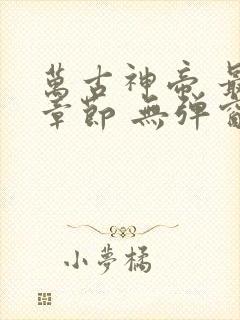 萬古神帝 最
章節 無彈窗
小夢橘